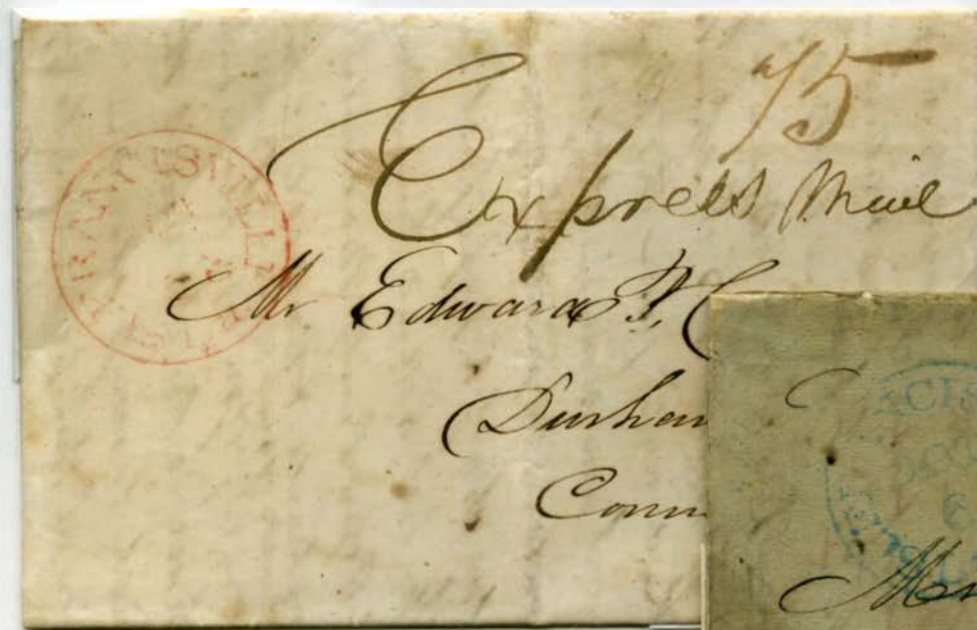 75
Express Mail
FRANCISVILLE
Mr Edward P. C
Durham
Conn
ACIS
6
Mr